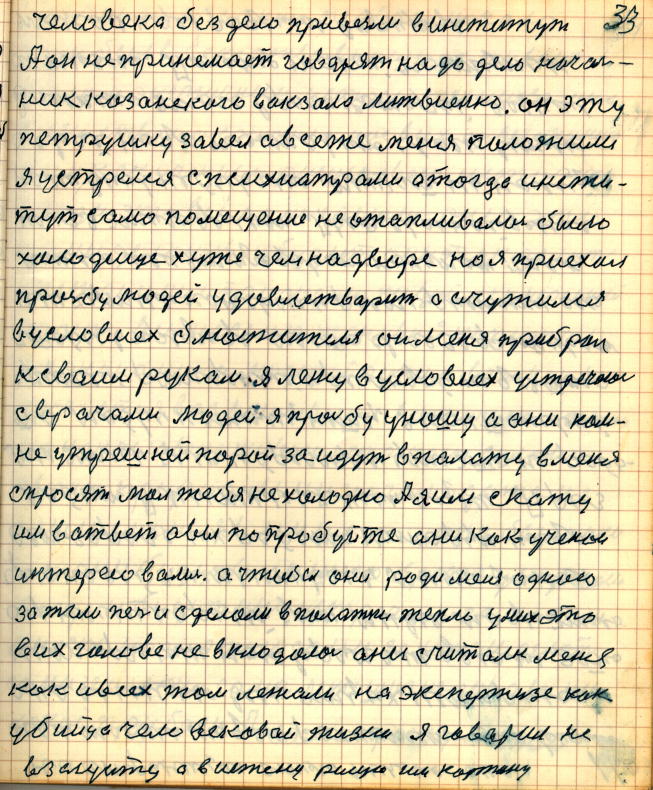 33
человека без дело привезли в институт
А он не принемает говарят надо дело началь-
ник козанского вокзала литвиенко. он эту
петрушку завел а всеже меня положили
я устрелся с психиатрами а тогда инсти-
тут само помещение не отапливалос было
холодище хуже чем на дворе но я приехал
прозбу людей удовлетварит а очутился
в условиех блюстителя он меня прибрал
к сваим рукам. я лежу в условиех устречаюс
с врачами людей я прозбу уношу а ани ком-
не утрешней порой заидут в палату в меня
спросят мол тебя не холодно А я им скажу
им ватвет а вы попробуйте ани как ученои
интересовалис. а чтобы они ради меня одного
зажгли печ и сделали в палати тепло у них это
в их галове не вклодолос ани считали меня
как и всех там лежали на экспертизе как
убийца человековай жизни я говарил не
в истену им картину